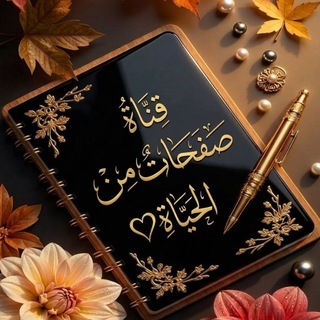 قِنَّاةُ
صَفَحَاتٌ مِن
الحَيَّاةِ ♡